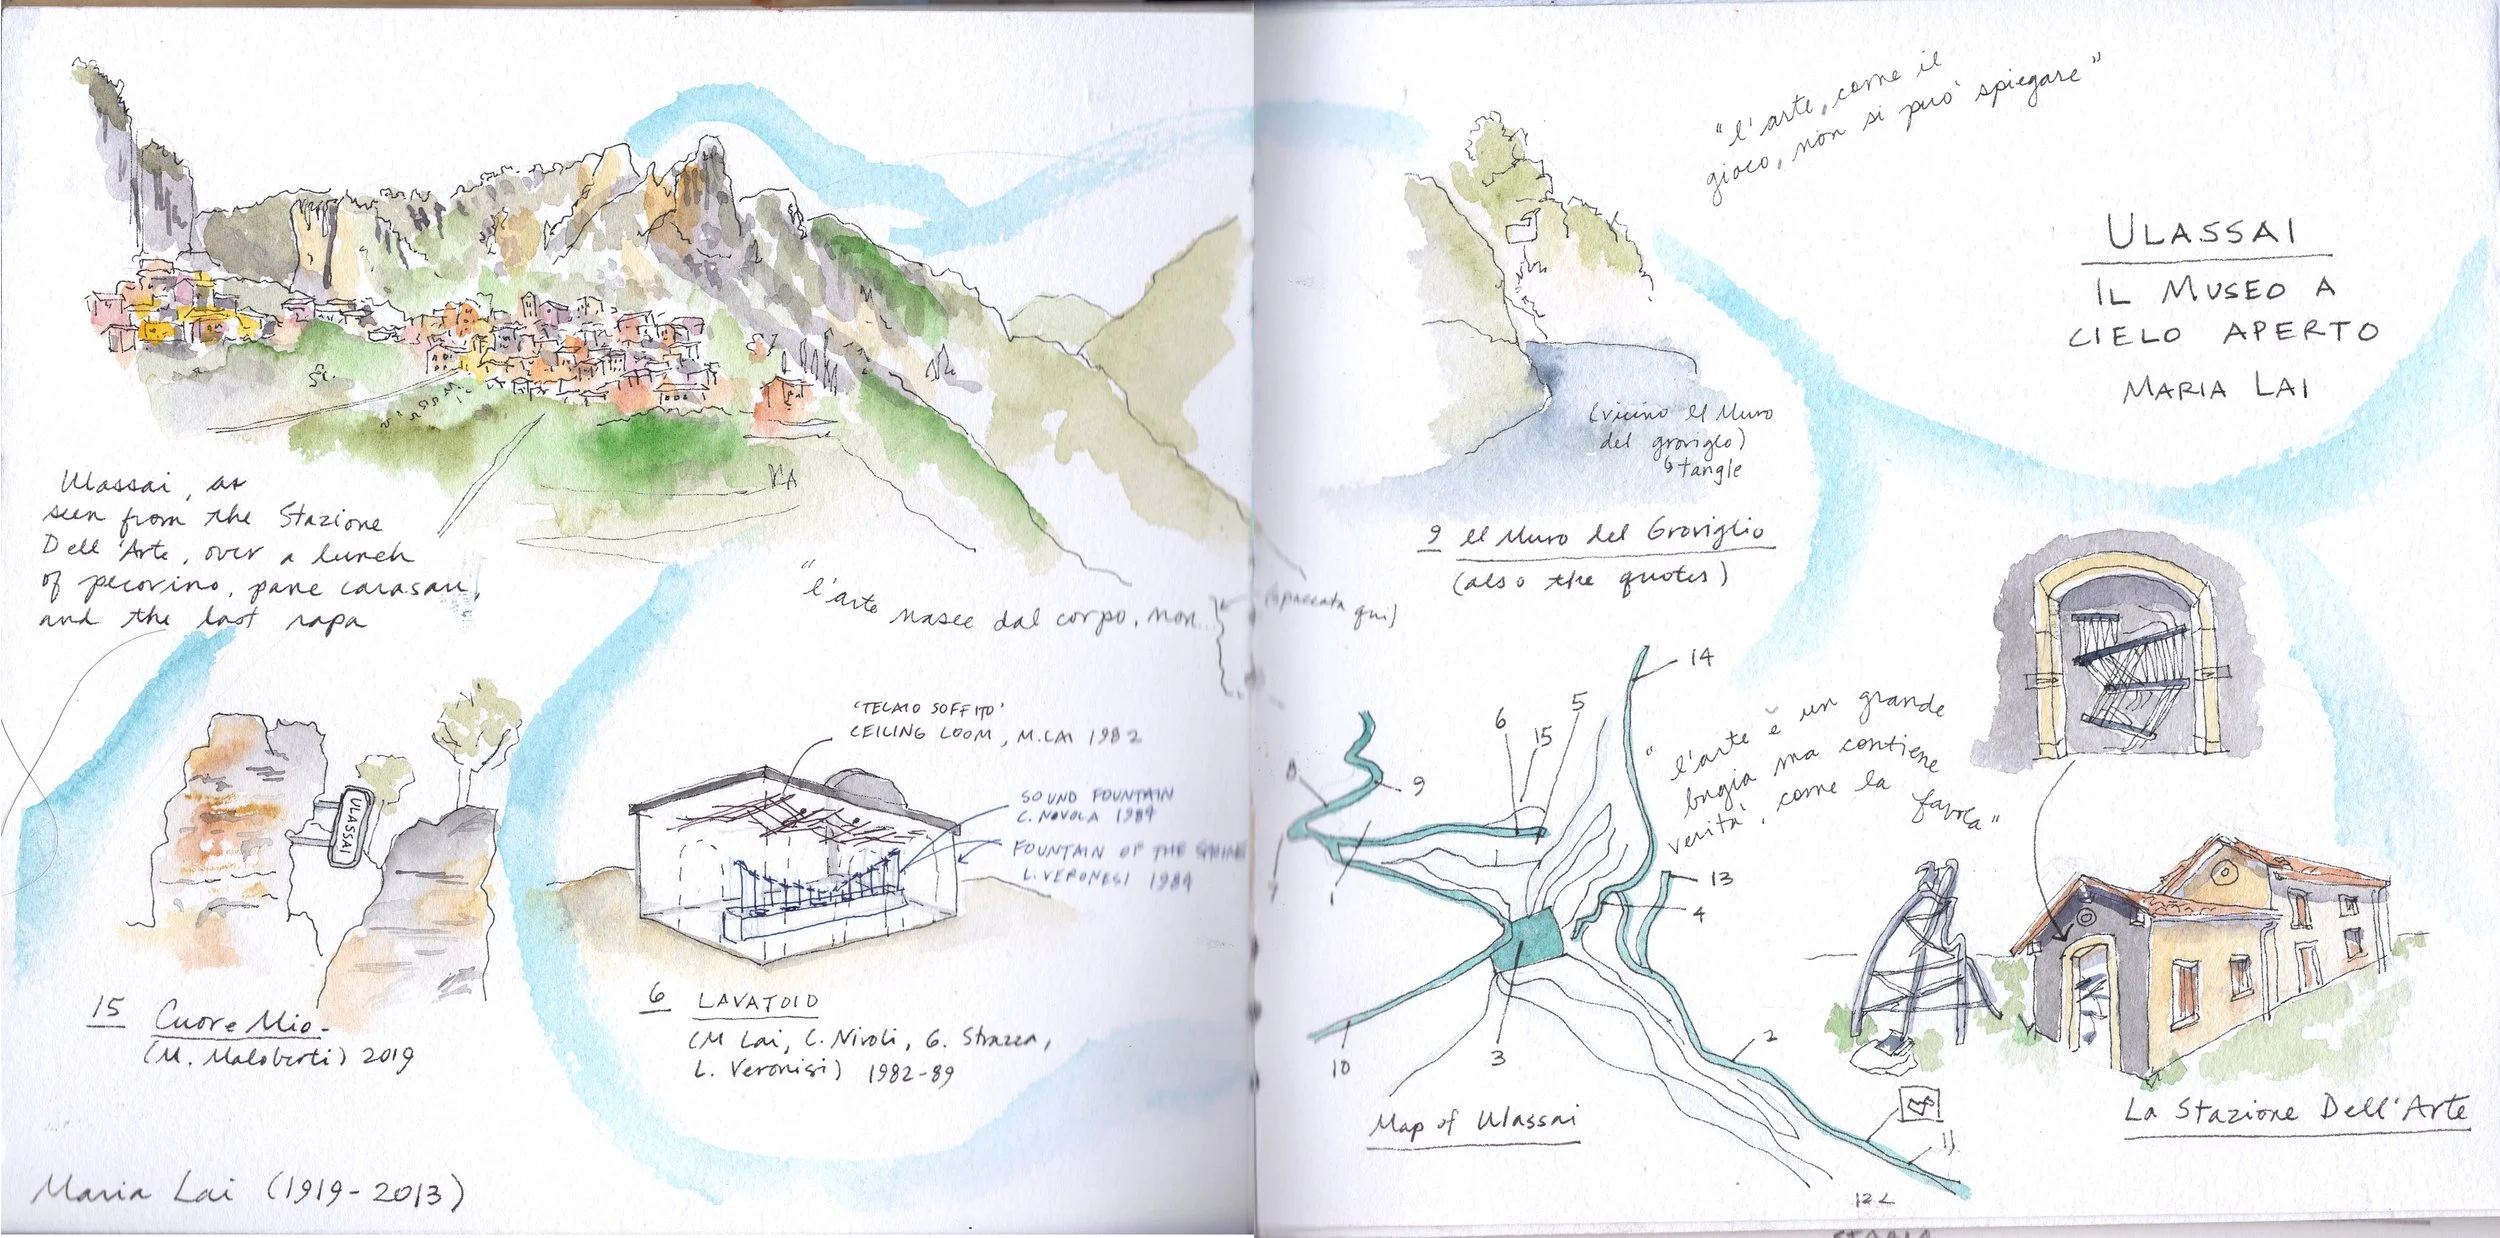 Ulassai, as
seen from the Stazione
Dell'Arte, over a lunch
of pecorino, pane carasau,
and the last rapa
"l'arte nasce dal corpo, non...
(spaccata qui)
15 Cuore Mio-
(M. Maloberti) 2019
ULASSAI
'TELAIO SOFFITO'
CEILING LOOM, M. LAI 1982
SOUND FOUNTAIN
C. NIVOLA 1987
FOUNTAIN OF THE SPRING
L. VERONESI 1984
6 LAVATOIO
(M Lai, C. Nivoli, G. Strazza,
L. Veronisi) 1982-89
Maria Lai (1919-2013)
"l'arte, come il
gioco, non si può spiegare"
ULASSAI
IL MUSEO A
CIELO APERTO
MARIA LAI
(vicino il Muro
del groviglo)
↳ tangle
9 Il Muro del Groviglio
(also the quotes)
"l'arte è un grande
bugia ma contiene
verità, come la favola"
14
5
6
15
8
9
7
1
13
4
10
3
2
11
12
Map of Ulassai
La Stazione Dell'Arte